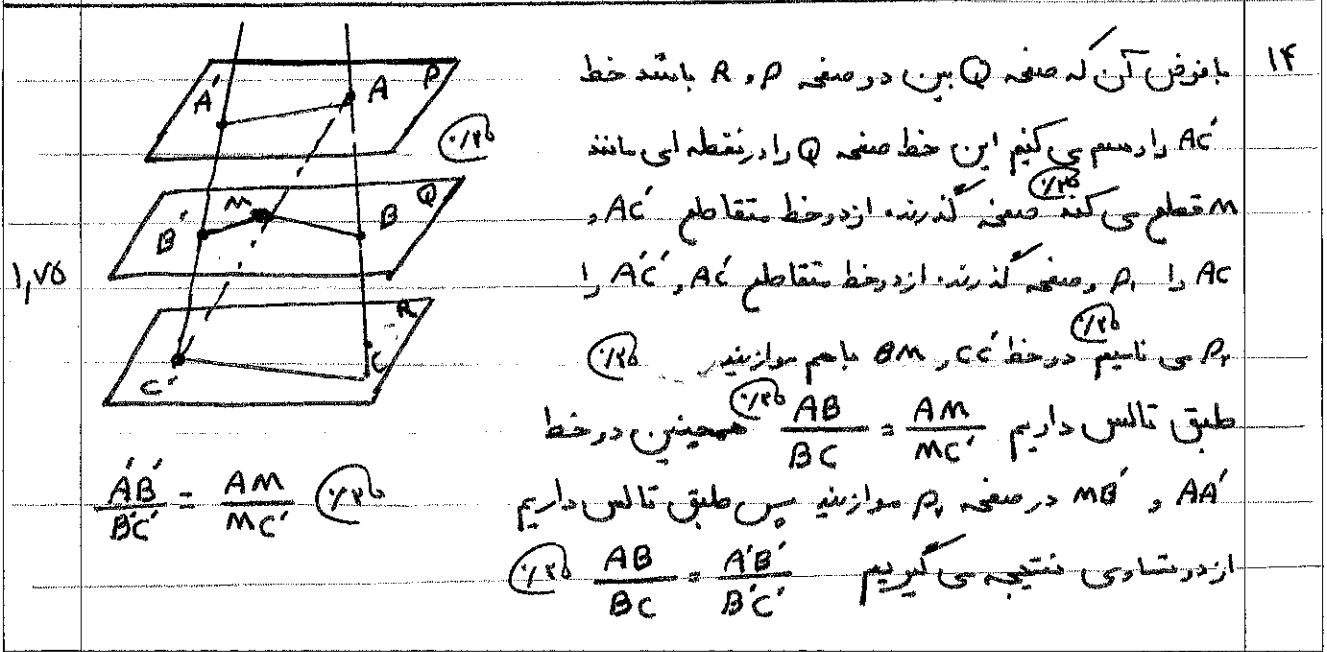 ۱۴
با فرض آن که صفحه Q بین دو صفحه P و R باشد خط
AC' را رسم می کنیم این خط صفحه Q را در نقطه ای مانند
M قطع می کند ۰/۲۵ صفحه گذرنده از دو خط متقاطع AC' و
AC را P₁ و صفحه گذرنده از دو خط متقاطع AC' و A'C' را
P₂ می نامیم ۰/۲۵ دو خط CC' و BM با هم موازیند ۰/۲۵
طبق تالس داریم AB/BC = AM/MC' ۰/۲۵ همچنین دو خط
AA' و MB' در صفحه P₂ موازیند پس طبق تالس داریم A'B'/B'C' = AM/MC' ۰/۲۵
از دو تساوی نتیجه می گیریم AB/BC = A'B'/B'C' ۰/۲۵
۱,۷۵
A' A P
۰/۲۵
M Q
B' B
R
C' C